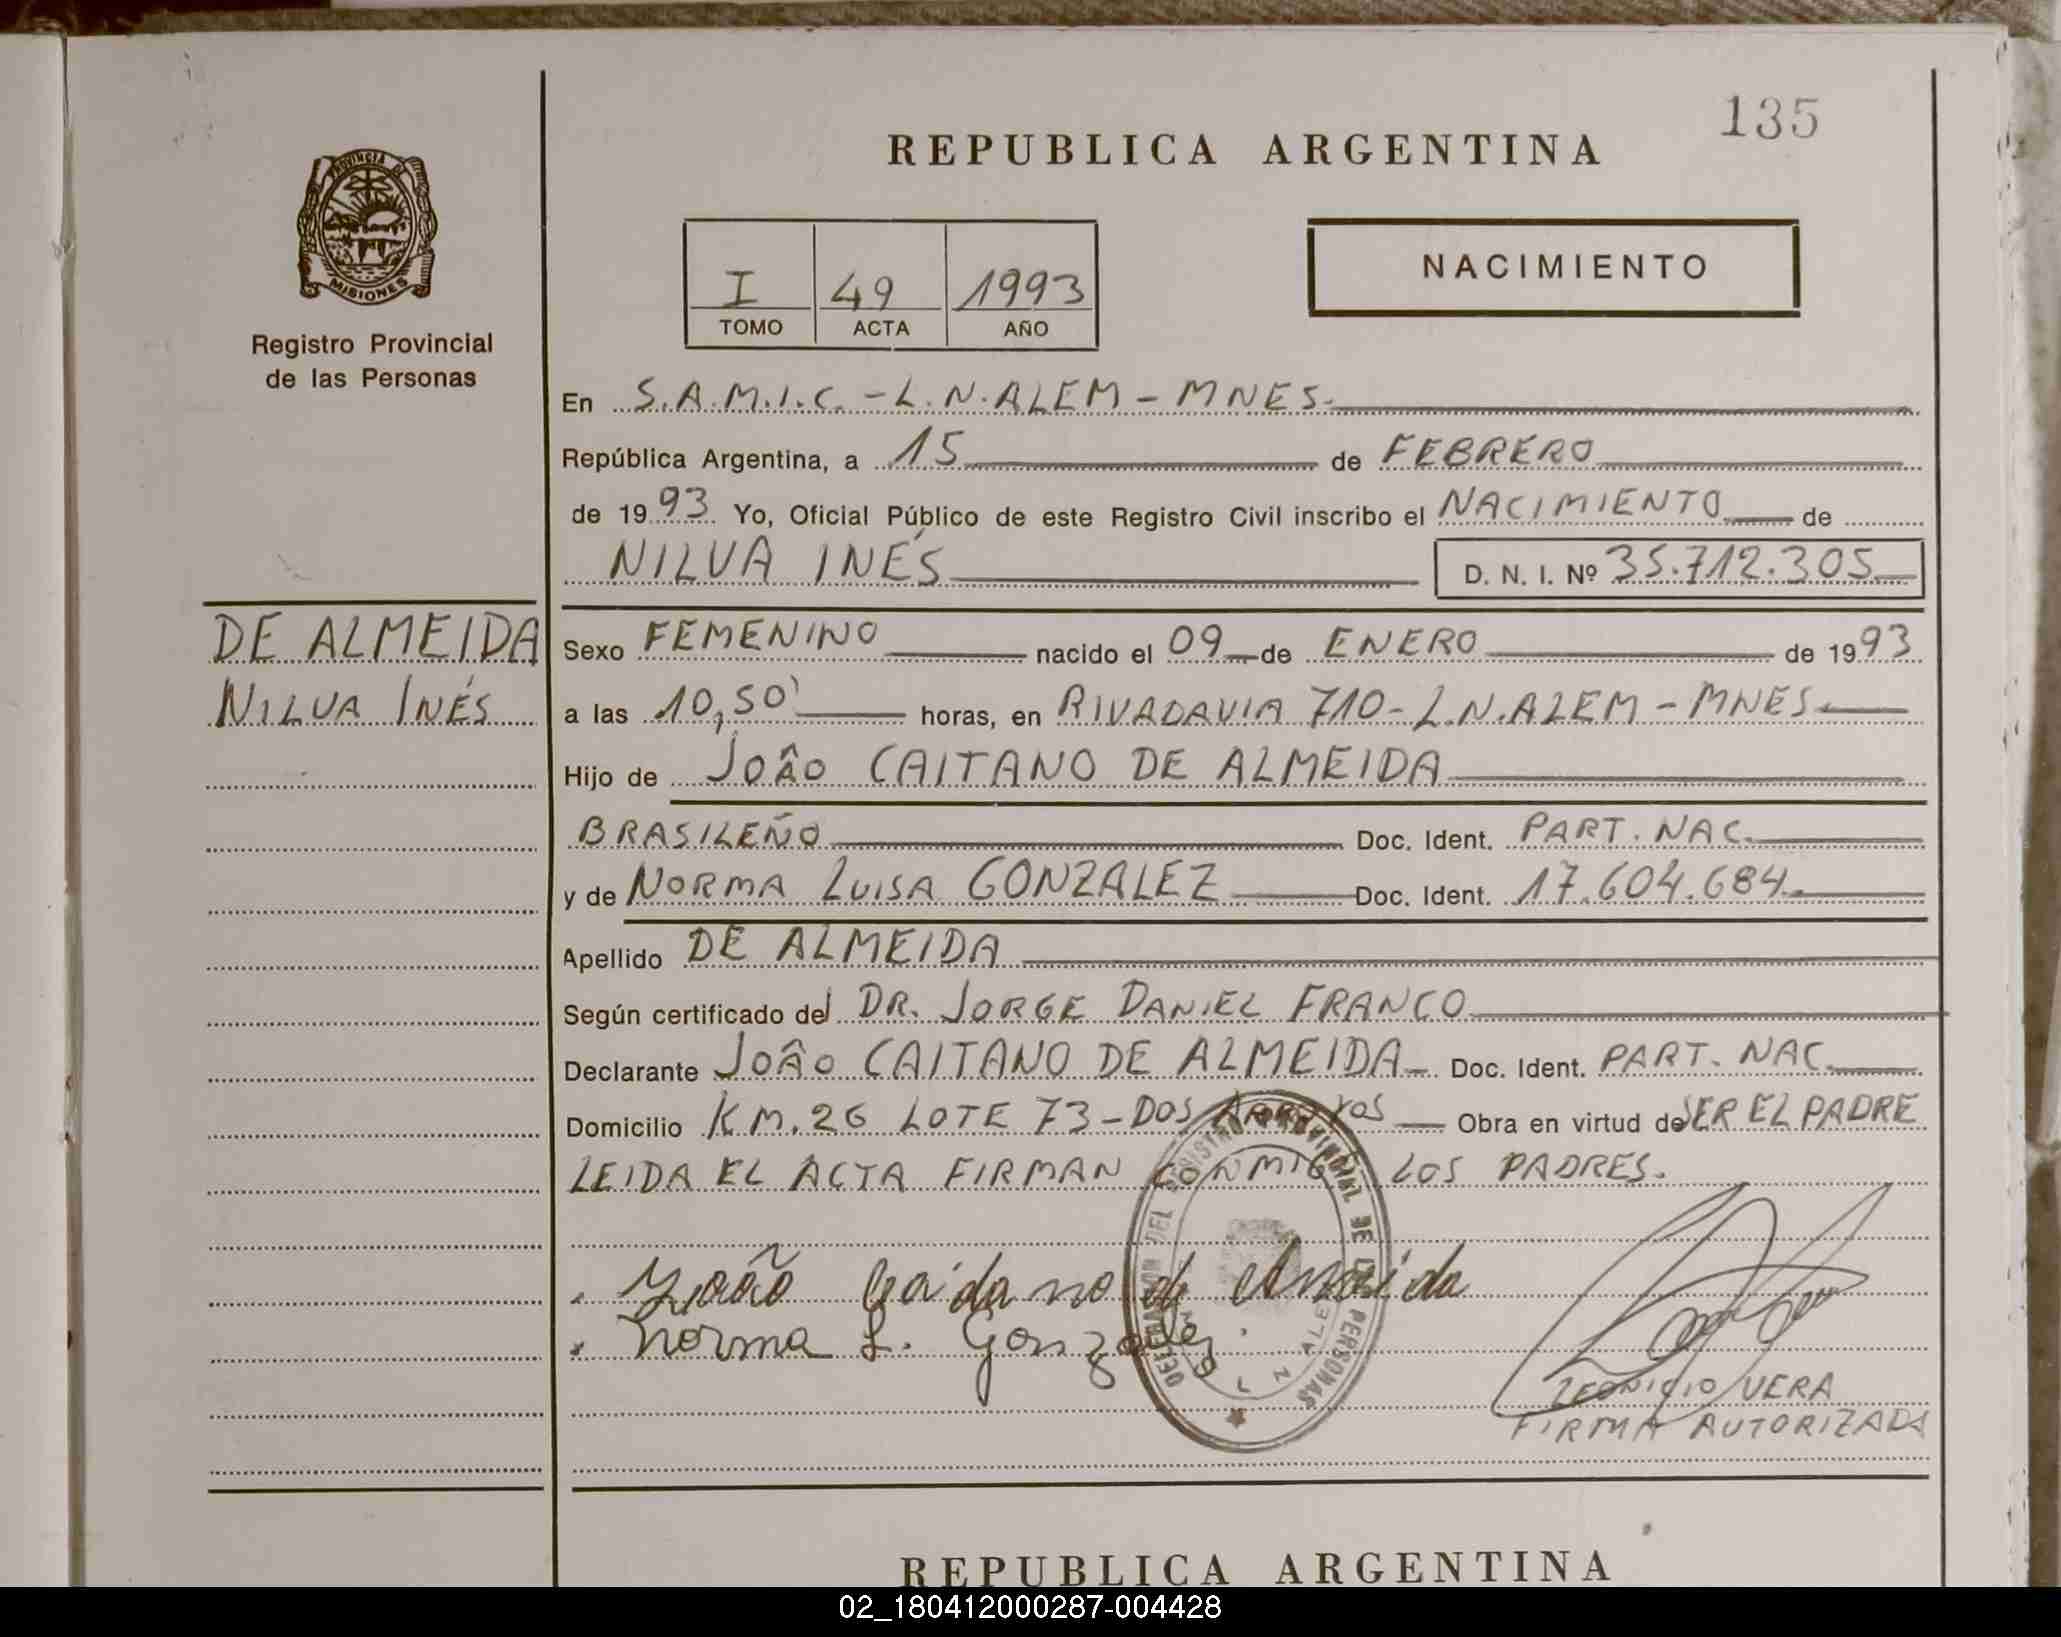 135
REPUBLICA ARGENTINA
PROVINCIA DE
MISIONES
Registro Provincial
de las Personas
I 49 1993
TOMO ACTA AÑO
NACIMIENTO
En S.A.M.I.C. - L.N.ALEM - MNES.
República Argentina, a 15 de FEBRERO
de 1993 Yo, Oficial Público de este Registro Civil inscribo el NACIMIENTO de
NILVA INÉS D. N. I. Nº 35.712.305
DE ALMEIDA
NILVA INÉS
Sexo FEMENINO nacido el 09 de ENERO de 1993
a las 10,50' horas, en RIVADAVIA 710 - L.N.ALEM - MNES
Hijo de JOÂO CAITANO DE ALMEIDA
BRASILEÑO Doc. Ident. PART. NAC.
y de NORMA LUISA GONZALEZ Doc. Ident. 17.604.684
Apellido DE ALMEIDA
Según certificado del DR. JORGE DANIEL FRANCO
Declarante JOÂO CAITANO DE ALMEIDA Doc. Ident. PART. NAC.
Domicilio KM. 26 LOTE 73 - DOS ARROYOS Obra en virtud de SER EL PADRE
LEIDA EL ACTA FIRMAN CONMIGO LOS PADRES.
João Caidano de Almeida
Norma L. Gonzalez
DEL REGISTRO PROVINCIAL DE LAS PERSONAS
L N ALEM
LEONICIO VERA
FIRMA AUTORIZADA
REPUBLICA ARGENTINA
02_180412000287-004428